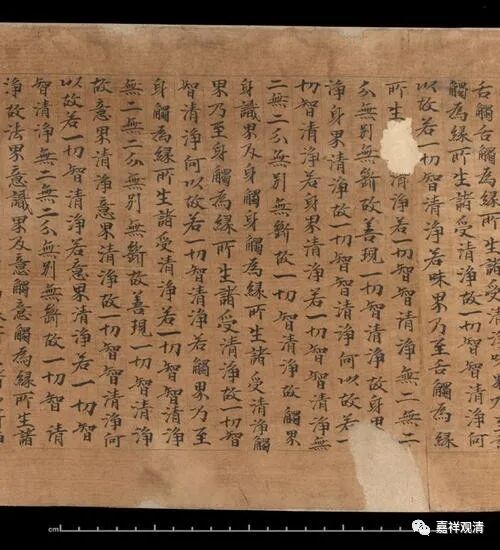 舌觸舌觸為緣所生諸受清淨
觸為緣所生諸受清淨故一切智智清淨何
以故若一切智智清淨若味界乃至舌觸為緣
所生清淨若一切智智清淨無二無二
分無別無斷故善現一切智智清淨故身界清
淨身界清淨故一切智智清淨何以故若一
切智智清淨若身界清淨若一切智智清淨無
二無二分無別無斷故一切智智清淨故觸界
身識界及身觸身觸為緣所生諸受清淨觸
界乃至身觸為緣所生諸受清淨故一切智
智清淨何以故若一切智智清淨若觸界乃至
身觸為緣所生諸受清淨若一切智智清淨
無二無二分無別無斷故善現一切智智清淨
故意界清淨意界清淨故一切智智清淨何
以故若一切智智清淨若意界清淨若一切智
智清淨無二無二分無別無斷故一切智智清
淨故法界意識界及意觸意觸為緣所生諸
cm
嘉祥观清